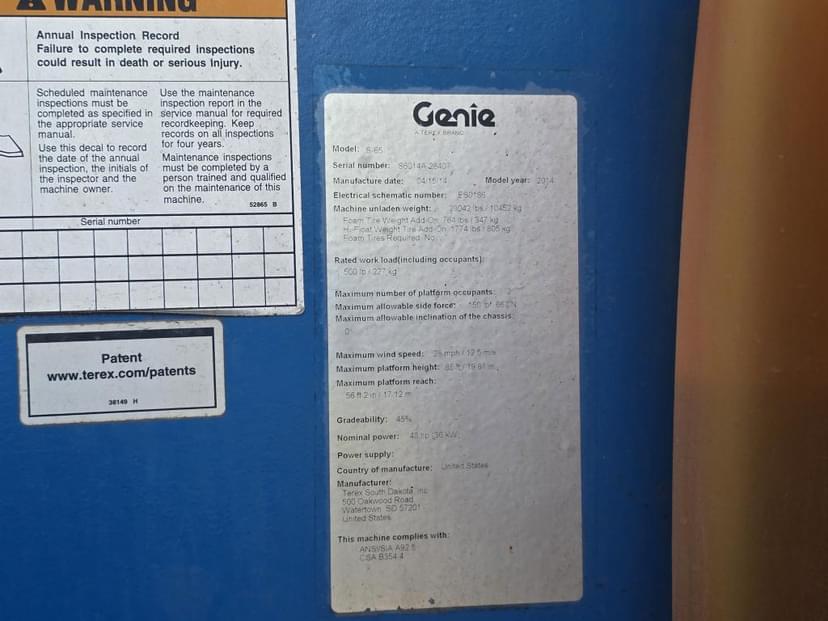 WARNING
Annual Inspection Record
Failure to complete required inspections
could result in death or serious injury.
Scheduled maintenance
inspections must be
completed as specified in
the appropriate service
manual.
Use this decal to record
the date of the annual
inspection, the initials of
the inspector and the
machine owner.
Use the maintenance
inspection report in the
service manual for required
recordkeeping. Keep
records on all inspections
for four years.
Maintenance inspections
must be completed by a
person trained and qualified
on the maintenance of this
machine.
52865 B
Serial number
Patent
www.terex.com/patents
38149 H
Genie
A TEREX BRAND
Model: S-65
Serial number: S6014A-28407
Manufacture date: 04/15/14 Model year: 2014
Electrical schematic number: ES0186
Machine unladen weight: 23042 lbs / 10452 kg
Foam Tire Weight Add-On: 764 lbs / 347 kg
Hi-Float Weight Tire Add-On: 1774 lbs / 805 kg
Foam Tires Required: No
Rated work load(including occupants):
500 lb / 227 kg
Maximum number of platform occupants: 2
Maximum allowable side force:
Maximum allowable inclination of the chassis:
0°
Maximum wind speed: 28 mph / 12.5 m/s
Maximum platform height: 65 ft / 19.81 m
Maximum platform reach:
56 ft 2 in / 17.12 m
Gradeability: 45%
Nominal power: 48 hp / 36 kW
Power supply:
Country of manufacture: United States
Manufacturer:
Terex South Dakota, Inc
500 Oakwood Road
Watertown SD 57201
United States
This machine complies with:
ANSI/SIA A92.5
CSA B354.4